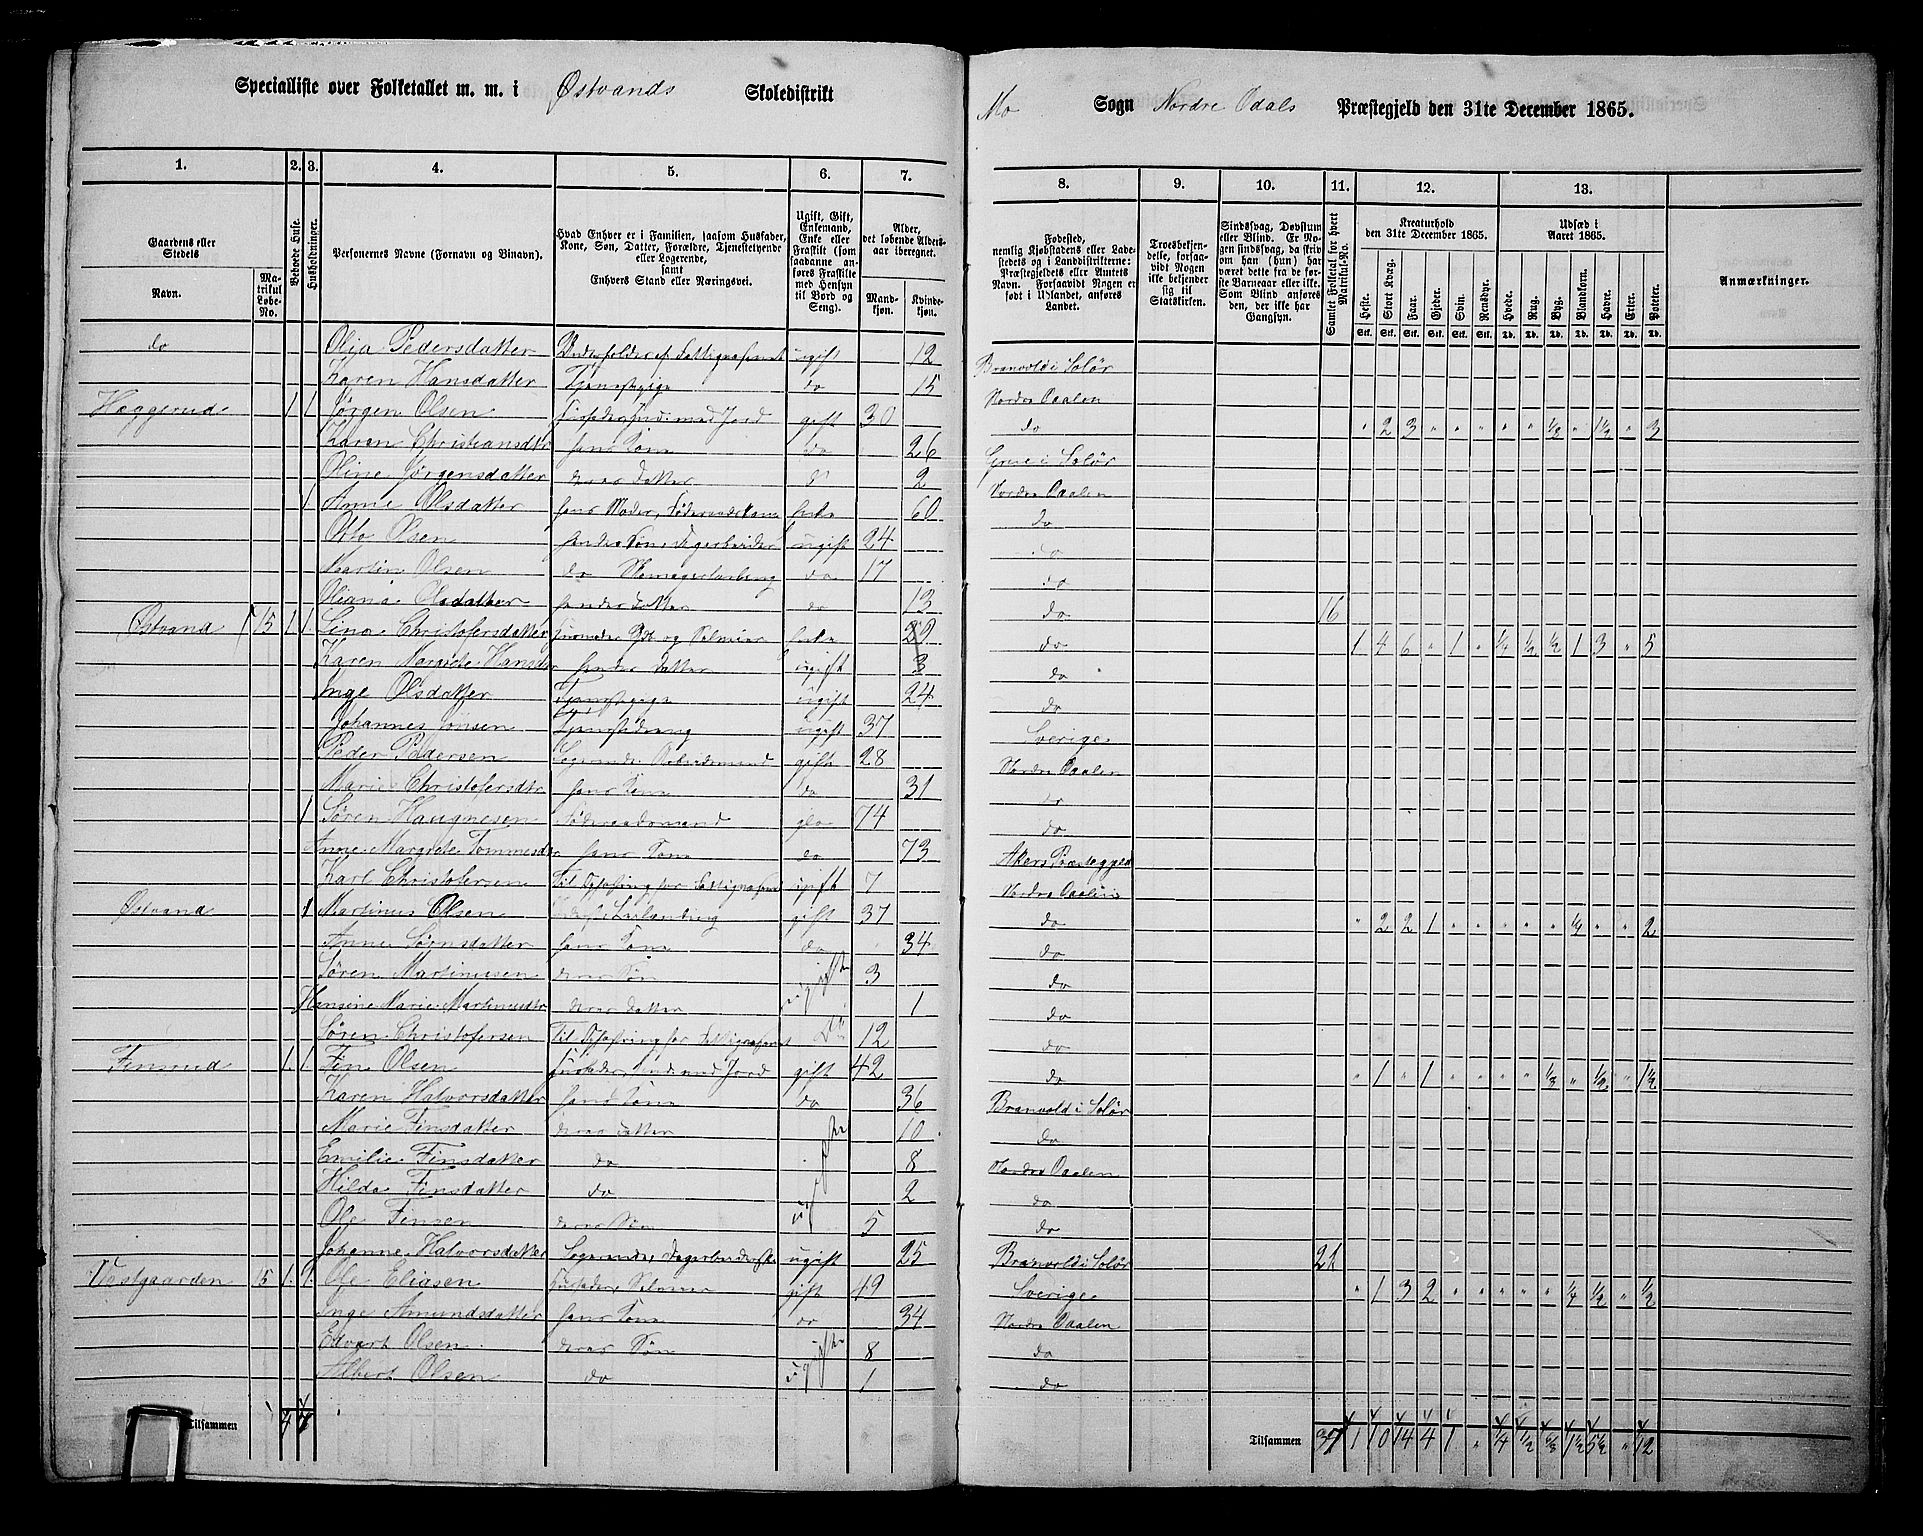 Specialliste over Folketallet m. m. i Østvands Skoledistrikt
Mo Sogn Nordre Odals Præstegjeld den 31te December 1865.
1. 2. 3. 4. 5. 6. 7. 8. 9. 10. 11. 12. 13.
Gaardens eller Stedets
Navn. Matrikul Løbe-No.
Beboede Huse.
Husholdninger.
Personernes Navne (Fornavn og Binavn).
Hvad Enhver er i Familien, saasom Husfader, Kone, Søn, Datter, Forældre, Tjenestetyende eller Logerende, samt Enhvers Stand eller Næringsvei.
Ugift, Gift, Enkemand, Enke eller Fraskilt (som saadanne anføres Fraskilte med Hensyn til Bord og Seng).
Alder, det løbende Aldersaar iberegnet.
Mandkjøn. Kvindekjøn.
Fødested, nemlig Kjøbstadens eller Ladestedets og i Landdistrikterne: Præstegjeldets eller Amtets Navn. Forsaavidt Nogen er født i Udlandet, anføres Landet.
Troesbekjendelse, forsaavidt Nogen ikke bekjender sig til Statskirken.
Sindssvag, Døvstum eller Blind. Er Nogen sindssvag, da skriv om han (hun) har været dette fra de første Barneaar eller ikke. Som Blind anføres den, der ikke har Gangsyn.
Samlet Folketal for hvert Matrikul-No.
Kreaturhold den 31te December 1865.
Heste. Stort Kvæg. Faar. Gjeder. Svin. Rensdyr.
Udsæd i Aaret 1865.
Hvede. Rug. Byg. Blandkorn. Havre. Erter. Poteter.
Anmærkninger.
do Olia Pedersdatter ugift 12 Branvold i Solør
Karen Hansdatter Tjenestepige do 15 Nordre Odalen
Haggerud 1 1 Jørgen Olsen gift 30 do " 2 3 " " " " " 1/3 " 1 1/2 " 3
Karen Christiansdtr hans Kone do 26 Grue i Solør
Oline Jørgensdatter deres Datter 2 Nordre Odalen
1 Anne Olsdatter hans Moder, Føderaadskone Enke 60 do
Otto Olsen hendes Søn, Dagarbeider ugift 24 do
Martin Olsen do 17 do
Oliana Olsdatter hendes Datter do 13 do 16
Østvand 15 1 1 Lina Christofersdatter Enke 29 do 1 4 6 " 1 " 1/4 1/2 1/2 1 3 " 5
Karen Margrete Hansdtr hendes Datter ugift 3 do
Inge Olsdatter Tjenestepige ugift 24 do
Johannes Jonsen Tjenestedreng ugift 37 Sverige
Peder Pedersen Logerende, Arbeidsmand gift 28 Nordre Odalen
Marie Christofersdtr hans Kone do 31 do
1 Søren Haugnesen Føderaadsmand gift 74 do
Anne Margrete Tommesdtr hans Kone do 73 Akers Præstegjeld
Karl Christofersen Til Opfostring for Fattigvæsenet ugift 7 Nordre Odalen
Østvand 1 Martinus Olsen gift 37 do " 2 2 1 " " " " " 1/4 " " 2
Anne Sørnsdatter hans Kone do 34 do
Søren Martinusen deres Søn ugift 3 do
Hansine Marie Martinusdtr deres Datter 1 do
Søren Christofersen Til Opfostring for Fattigvæsenet do 12 do
Finsrud 1 1 Fin Olsen gift 42 do " 1 " 1 " " " " 1/3 " 1/2 " 1 1/2
Karen Halvorsdatter hans Kone do 36 Branvold i Solør
Marie Finsdatter deres Datter ugifte 10 do
Emilie Finsdatter do 8 Nordre Odalen
Hilda Finsdatter do 2 do
Ole Finsen deres Søn 5 do
Johanne Halvorsdatter ugift 25 Branvold i Solør 21
Vestgaarden 15 1 1 Ole Eliasen Husfader, Selveier gift 49 Sverige " 1 3 2 " " " " " 1/4 1/2 " 1/2
Inge Amundsdatter hans Kone do 34 Nordre Odalen
Edvart Olsen deres Søn ugifte 8 do
Albert Olsen do 1 do
Tilsammen 4 7
Tilsammen 37 1 10 14 4 1 " 1/4 1/2